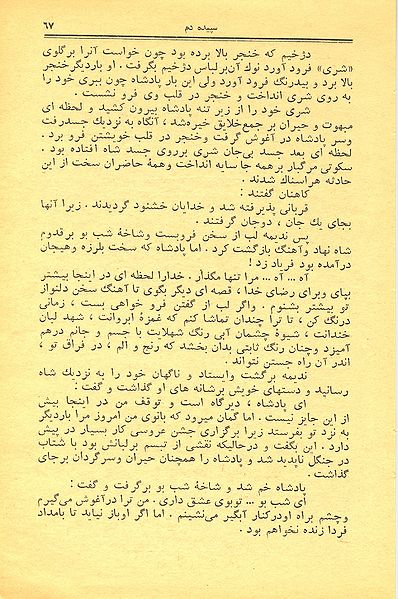 سپیده دم
۶۷
دژخیم که خنجر بالا برده بود چون خواست آنرا برگلوی
«شری» فرود آورد نوك آن بر لباس دژخیم بگرفت . او باردیگر خنجر
بالا برد و بیدرنگ فرود آورد ولی این بار پادشاه چون ببری خود را
به روی شری انداخت و خنجر در قلب وی فرو نشست .
شری خود را از زیر تنه پادشاه بیرون کشید و لحظه ای
مبهوت و حیران بر جمع خلایق خیره شد ، آنگاه به نزدیك جسد رفت
وسر پادشاه در آغوش گرفت وخنجر در قلب خویشتن فرو برد .
لحظه ای بعد جسد بی‌جان شری برروی جسد شاه افتاده بود .
سکوتی مرگبار بر همه جا سایه انداخت وهمهٔ حاضران سخت از این
حادثه هراسناك شدند .
کاهنان گفتند :
قربانی پذیرفته شد و خدایان خشنود گردیدند . زیرا آنها
بجای یك جان ، دوجان گرفتند .
پس ندیمه لب از سخن فروبست وشاخهٔ شب بو برقدوم
شاه نهاد وآهنگ بازگشت کرد . اما پادشاه که سخت بلرزه وهیجان
درآمده بود فریاد زد !
آه ... آه ... مرا تنها مگذار . خدارا لحظه ای در اینجا بیشتر
بپای وبرای رضای خدا ، قصه ای دیگر بگوی تا آهنگ سخن دلنواز
تو بیشتر بشنوم . واگر لب از گفتن فرو خواهی بست ، زمانی
درنگ کن ، تا ترا چندان تماشا کنم که غمزهٔ ابروانت ، شهد لبان
خندانت ، شیوهٔ چشمان آبی رنگ شهلایت با جسم و جانم درهم
آمیزد وچنان رنگ ثابتی بدان بخشد که رنج و الم ، در فراق تو ،
اندر آن راه جستن نتواند .
ندیمه برگشت وایستاد و ناگهان خود را به نزدیك شاه
رسانید و دستهای خویش برشانه های او گذاشت و گفت :
ای پادشاه ، دیرگاه است و توقف من در اینجا بیش
از این جایز نیست . اما گمان میرود که بانوی من امروز مرا باردیگر
به نزد تو بفرستد زیرا برگزاری جشن عروسی کار بسیار در پیش
دارد . این بگفت و درحالیکه نقشی از تبسم برلبانش بود با شتاب
در جنگل ناپدید شد و پادشاه را همچنان حیران وسرگردان برجای
گذاشت .
پادشاه خم شد و شاخهٔ شب بو برگرفت و گفت :
ای شب بو ... توبوی عشق داری . من ترا درآغوش می‌گیرم
وچشم براه اودرکنار آبگیر می‌نشینم . اما اگر اوباز نیاید تا بامداد
فردا زنده نخواهم بود .